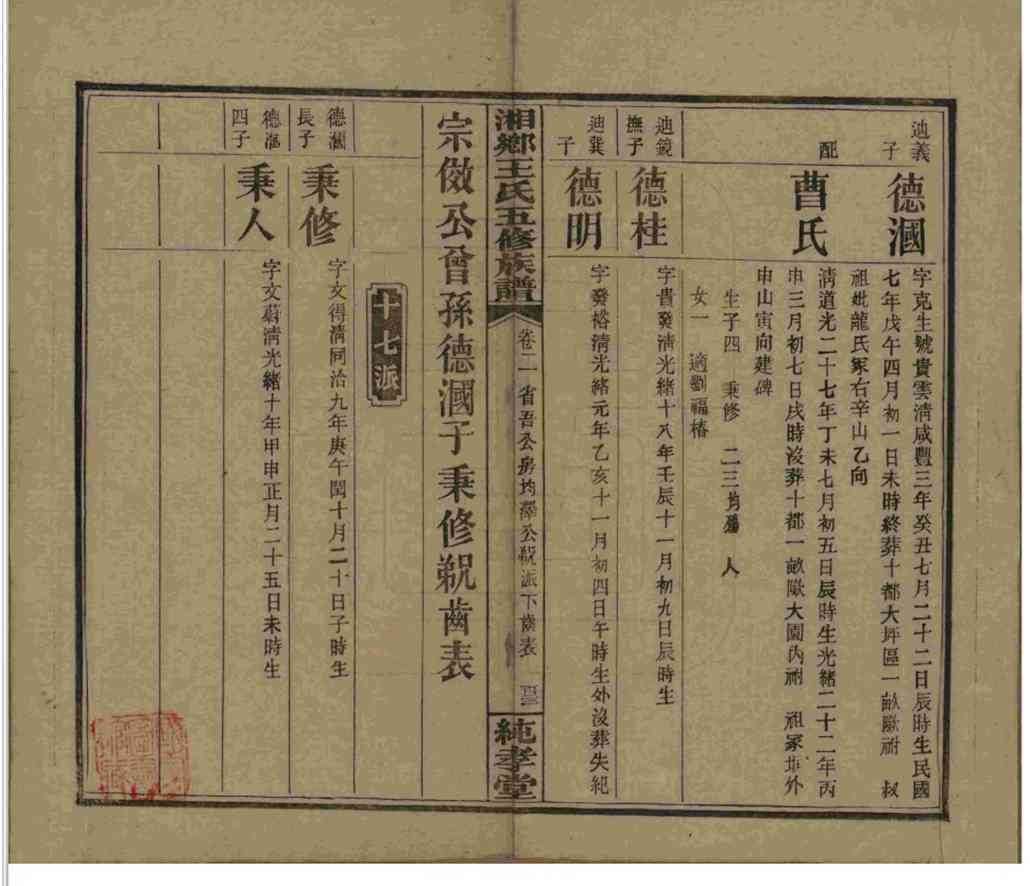 迪義子
德漍
字克生號貴雲清咸豐三年癸丑七月二十二日辰時生民國
七年戊午四月初一日未時終葬十都大坪區一畝歐祔 叔
祖妣龍氏冢右辛山乙向
配
曹氏
清道光二十七年丁未七月初五日辰時生光緒二十二年丙
申三月初七日戌時沒葬十都一畝歐大園內祔 祖冢坵外
申山寅向建碑
生子四 秉修 二三均殤 人
女一 適劉福椿
迪鏡撫子
德桂
字貴發清光緒十八年壬辰十一月初九日辰時生
迪巽子
德明
字發榕清光緒元年乙亥十一月初四日午時生外沒葬失紀
湘鄉王氏五修族譜
卷二 省吾公房均澤公 派下齒表
純孝堂
宗傚公曾孫德漍子秉修 齒表
十七派
德漍長子
秉修
字文得清同治九年庚午閏十月二十日子時生
德漍四子
秉人
字文蔚清光緒十年甲申正月二十五日未時生